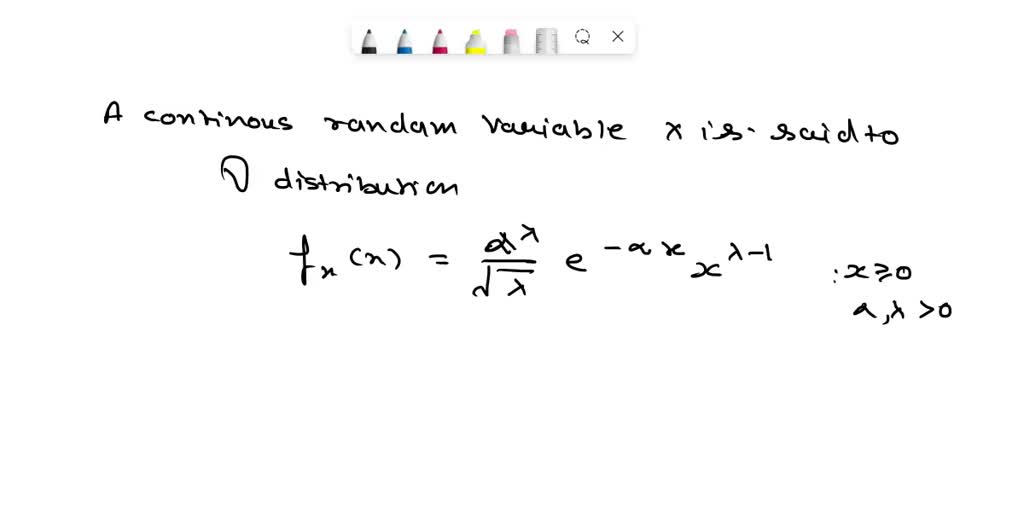 A continous random variable x is said to
Γ distribution
f_x(x) = α^λ / √λ e^{-αx} x^{λ-1} : x ≥ 0
α, λ > 0